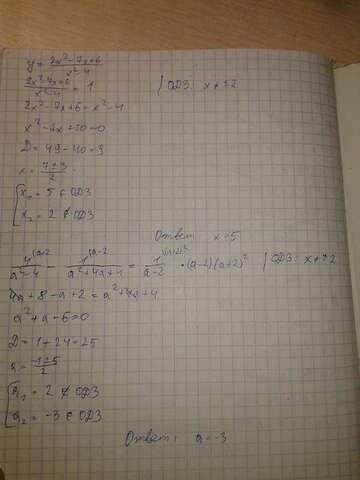 y = (2x² - 7x + 6)/(x² - 4)
(2x² - 7x + 6)/(x² - 4) = 1 | ОДЗ: x ≠ ±2
2x² - 7x + 6 = x² - 4
x² - 7x + 10 = 0
D = 49 - 40 = 9
x = (7 ± 3)/2
[ x₁ = 5 ∈ ОДЗ
x₂ = 2 ∉ ОДЗ
Ответ: x = 5
4/(a² - 4) - 1/(a² + 4a + 4) = 1/(a - 2) | · (a - 2)(a + 2)² | ОДЗ: x ≠ ±2
4a + 8 - a + 2 = a² + 4a + 4
a² + a - 6 = 0
D = 1 + 24 = 25
a = (-1 ± 5)/2
[ a₁ = 2 ∉ ОДЗ
a₂ = -3 ∈ ОДЗ
Ответ: a = -3